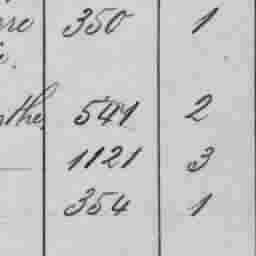 350 1
541 2
1121 3
354 1